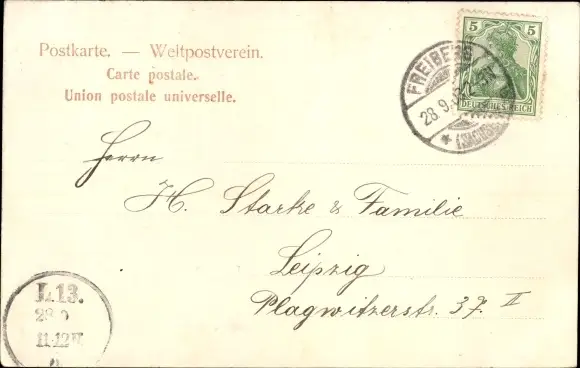 Postkarte. — Weltpostverein.
Carte postale.
Union postale universelle.
5 5
DEUTSCHES REICH
FREIBERG
28.9.
(SACHSEN)
Herrn
H. Starke & Familie
Leipzig
Plagwitzerstr. 37. II
L.13.
28 9
11-12 V